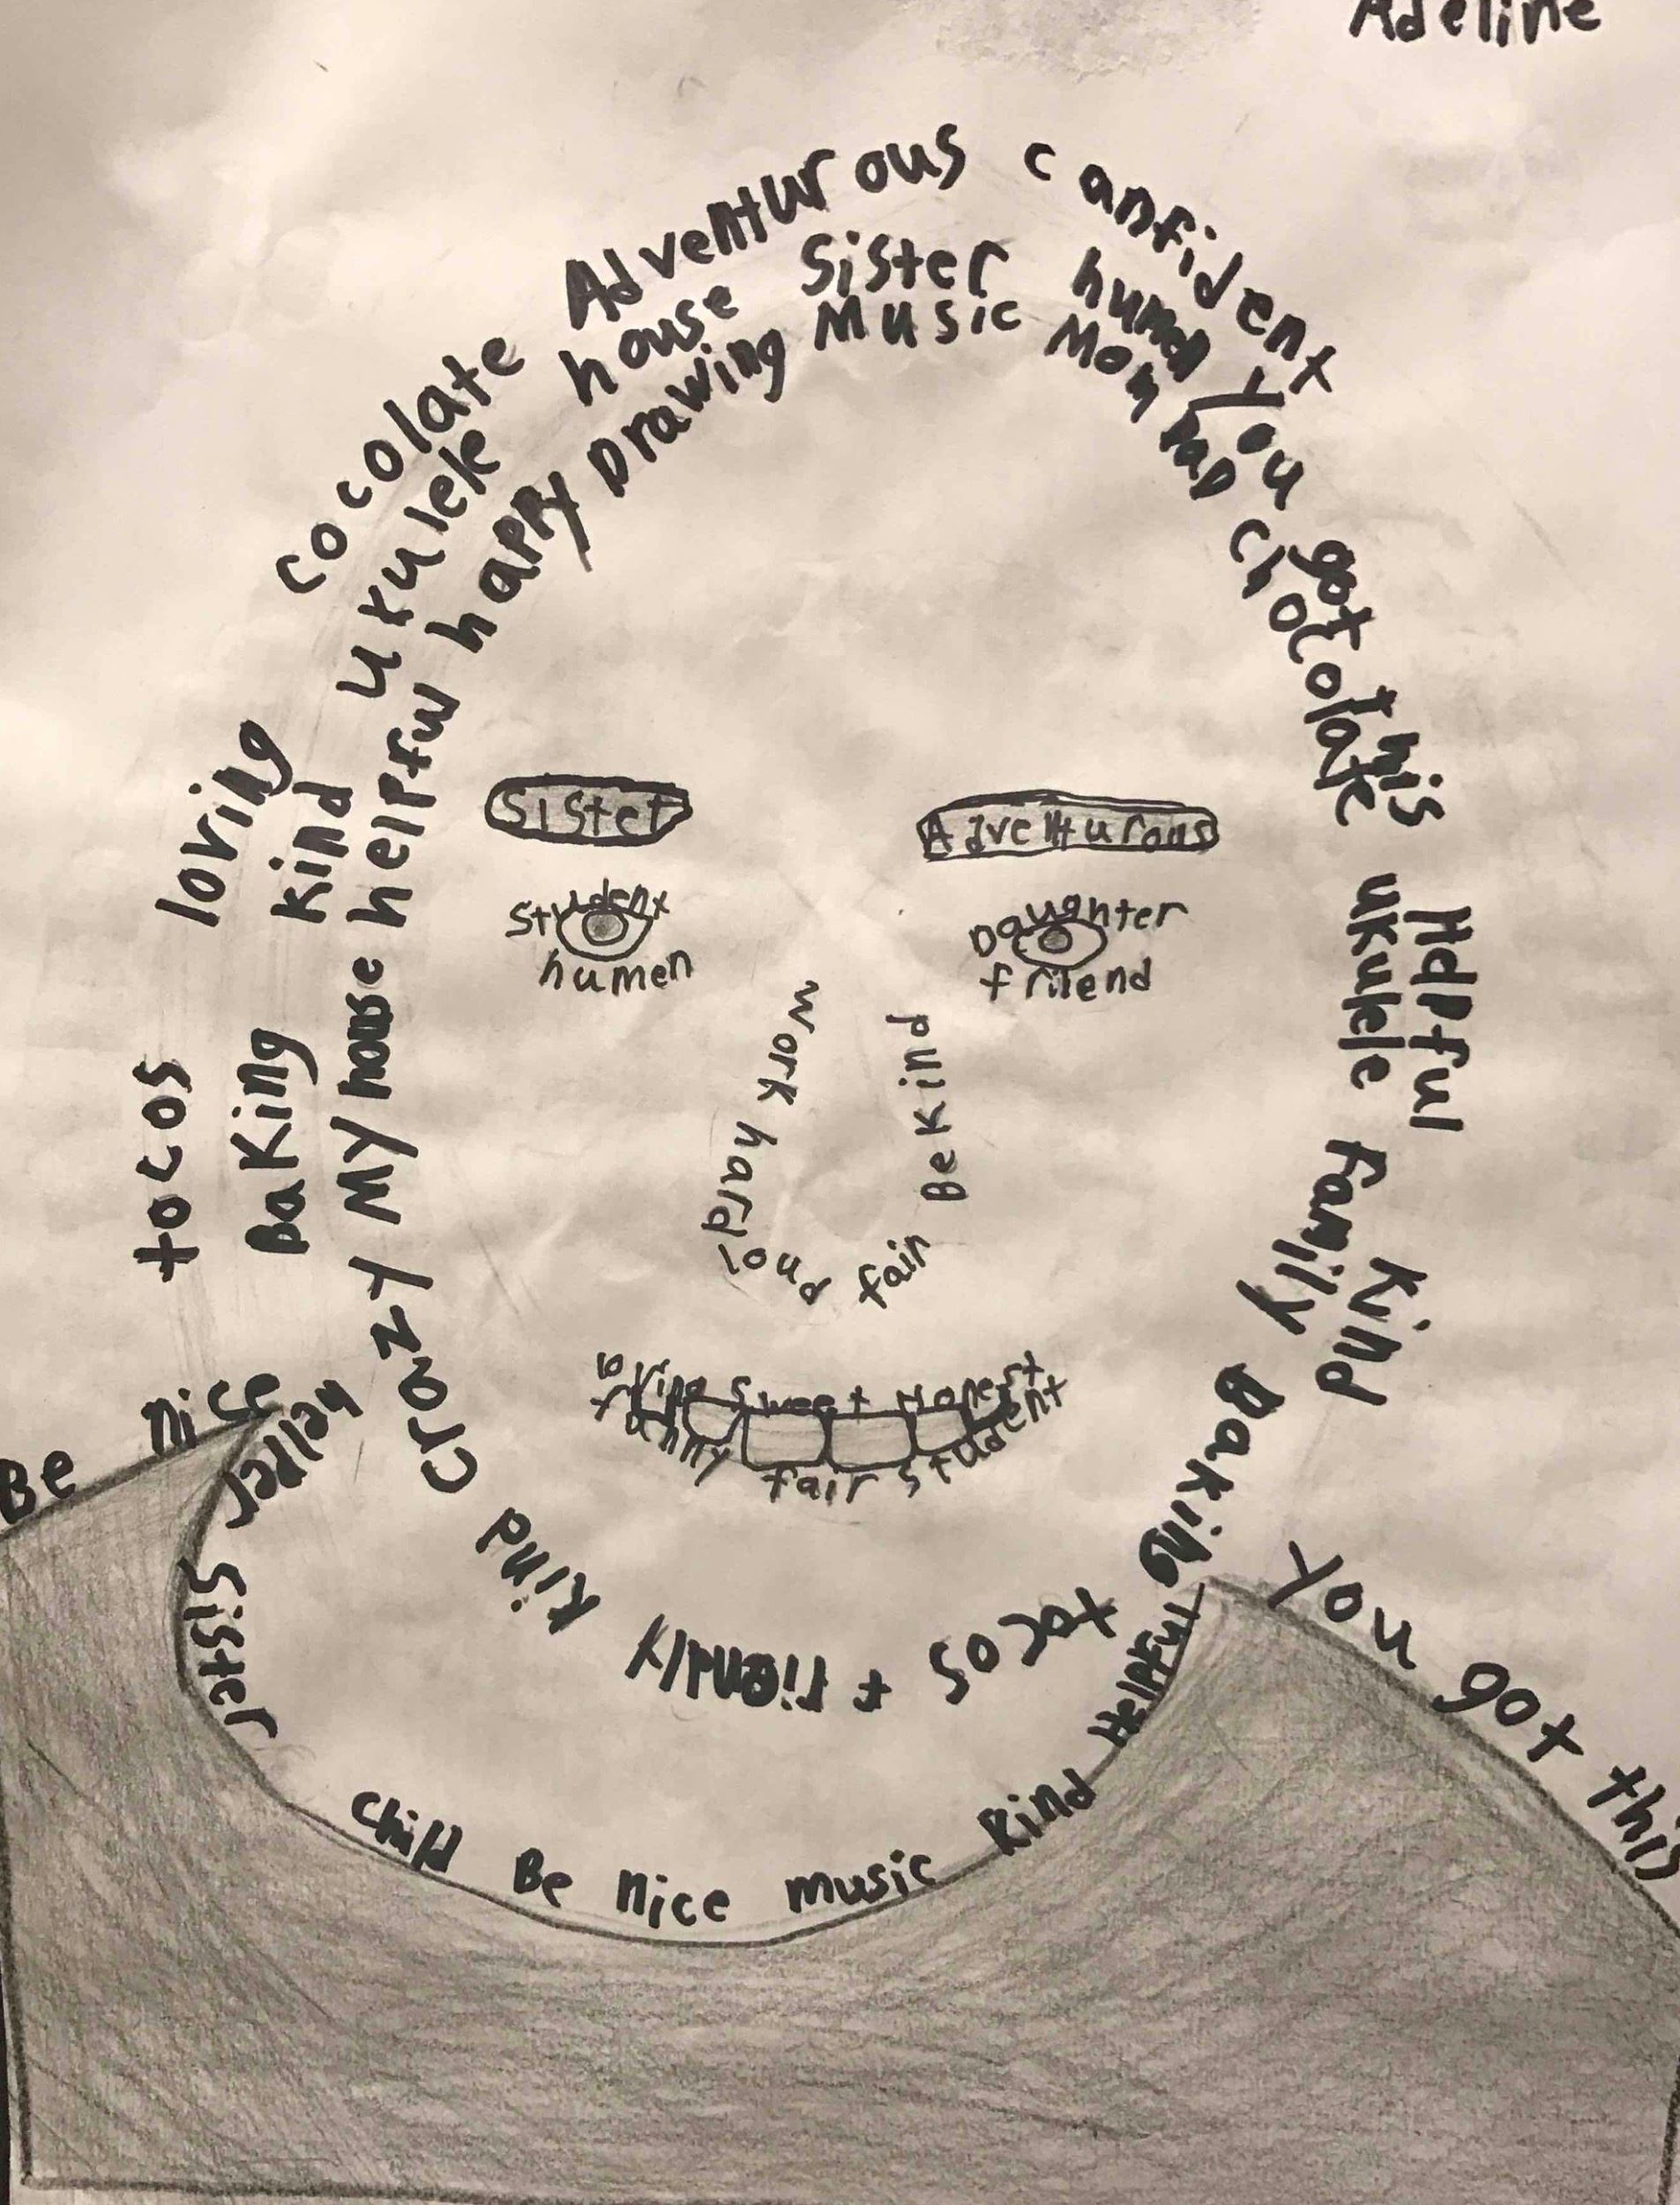 Adeline
tocos loving cocolate Adventurous canfident
Baking kind ukulele house Sister human you got this Helpful kind
Crazy My house helpful happy Drawing Music Mom Dad chocolate ukulele Family Baking tacos friendly kind
Sister
Adventurous
Student
humen
Daughter
friend
work hard
Be kind
loud
fair
Sweet Honest
funny fair student
Be nice
helper sister child Be nice music kind Helpful
You got this